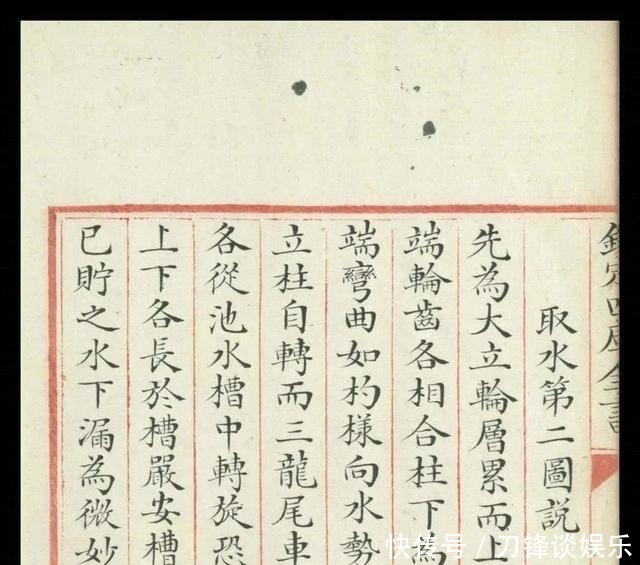 欽定四庫全書
取水第二圖說
先為大立輪層累而上
端輪齒各相合柱下為
端彎曲如杓樣向水勢
立柱自轉而三龍尾車
各從池水槽中轉旋恐
上下各長於槽嚴安槽
已貯之水下漏為微妙
快传号／刀锋谈娱乐